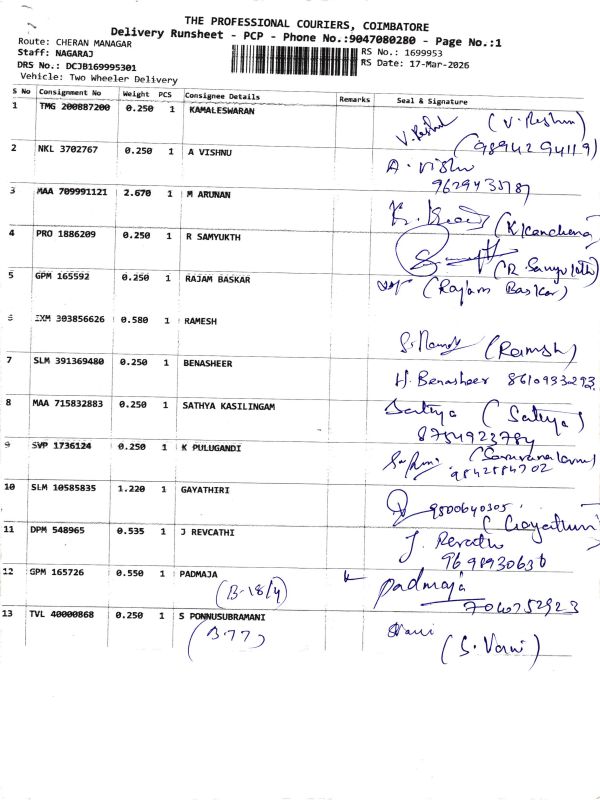 THE PROFESSIONAL COURIERS, COIMBATORE
Delivery Runsheet - PCP - Phone No.:9047080280 - Page No.:1
Route: CHERAN MANAGAR
RS No.: 1699953
Staff: NAGARAJ
RS Date: 17-Mar-2026
DRS No.: DCJB169995301
Vehicle: Two Wheeler Delivery
S No Consignment No Weight PCS Consignee Details Remarks Seal & Signature
1 TMG 200887200 0.250 1 KAMALESWARAN
(V. Reshma)
(9894294119)
2 NKL 3702767 0.250 1 A VISHNU A. Vishnu
3 MAA 709991121 2.670 1 M ARUNAN
(K Kanchana)
4 PRO 1886209 0.250 1 R SAMYUKTH
(R. Samyuktha)
5 GPM 165592 0.250 1 RAJAM BASKAR (Rajam Baskar)
6 IXM 303856626 0.580 1 RAMESH
(Ramesh)
7 SLM 391369480 0.250 1 BENASHEER
H. Benasheer 8610933293
8 MAA 715832883 0.250 1 SATHYA KASILINGAM Sathya (Sathya)
8754923784
9 SVP 1736124 0.250 1 K PULUGANDI
10 SLM 10585835 1.220 1 GAYATHIRI
9500640305
(Gayathiri)
11 DPM 548965 0.535 1 J REVCATHI J. Revathi
12 GPM 165726 0.550 1 PADMAJA Padmaja
(B-18/4)
7040752923
13 TVL 40000868 0.250 1 S PONNUSUBRAMANI Vani
(B-77) (S. Vani)